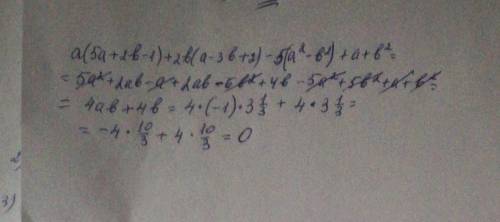 a(5a+2b-1)+2b(a-3b+2)-5(a²-b²)+a+b²=
=5a²+2ab-a+2ab-6b²+4b-5a²+5b²+a+b²=
= 4ab+4b = 4·(-1)·3 1/3 + 4·3 1/3 =
= -4·10/3 + 4·10/3 = 0
2
3)